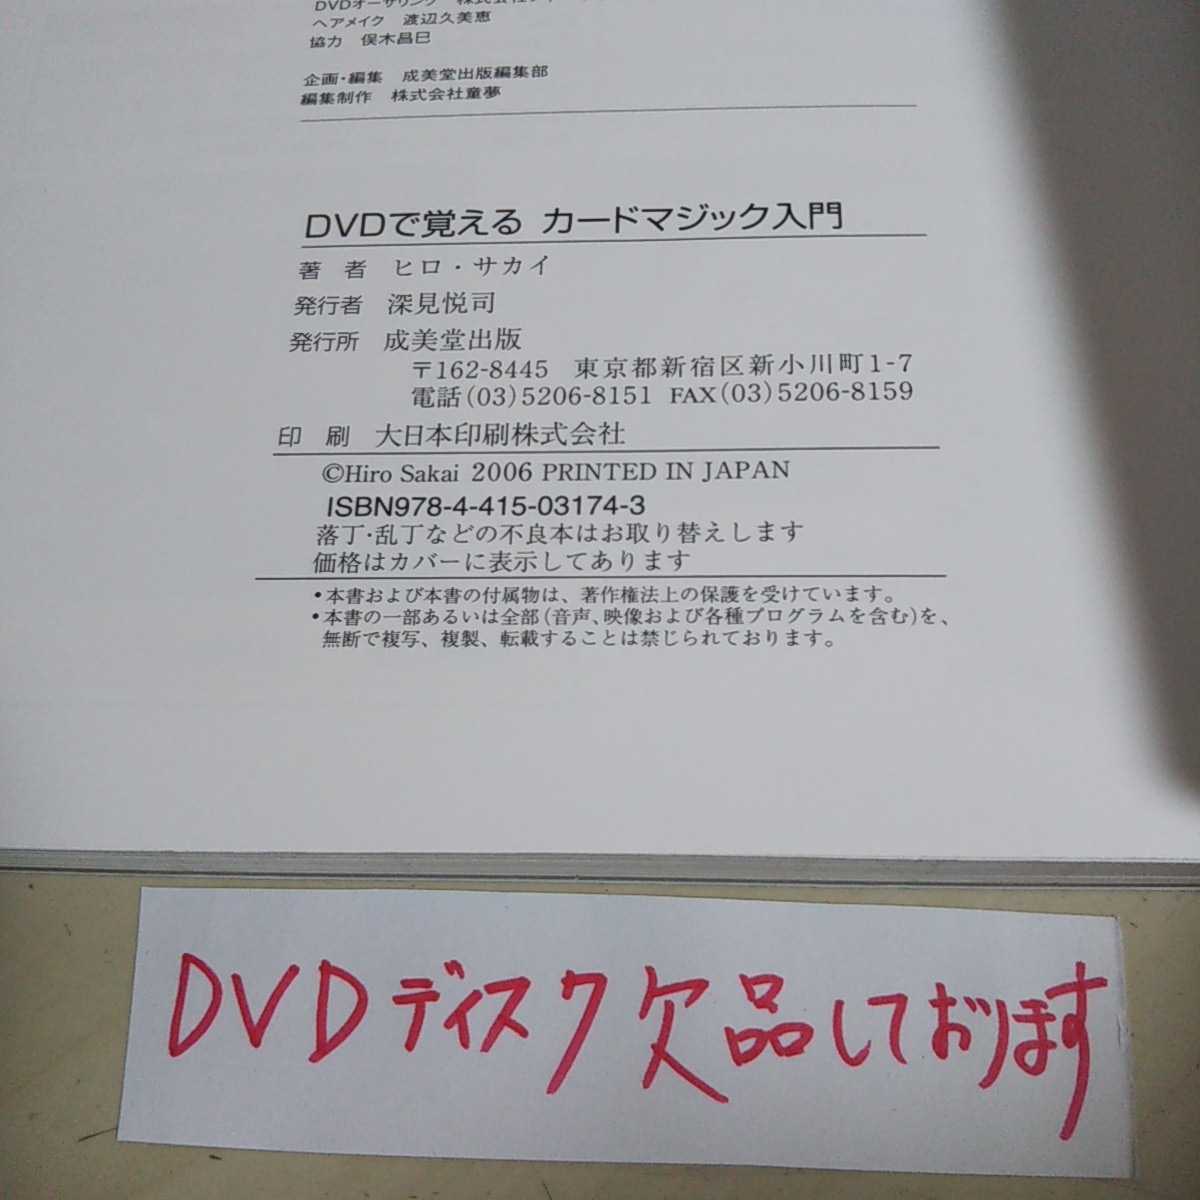 DVDオーサリング 株式会社
ヘアメイク 渡辺久美恵
協力 俣木昌巳
企画・編集 成美堂出版編集部
編集制作 株式会社童夢
DVDで覚える カードマジック入門
著 者 ヒロ・サカイ
発行者 深見悦司
発行所 成美堂出版
〒162-8445 東京都新宿区新小川町1-7
電話(03)5206-8151 FAX(03)5206-8159
印 刷 大日本印刷株式会社
©Hiro Sakai 2006 PRINTED IN JAPAN
ISBN978-4-415-03174-3
落丁・乱丁などの不良本はお取り替えします
価格はカバーに表示してあります
•本書および本書の付属物は、著作権法上の保護を受けています。
•本書の一部あるいは全部(音声、映像および各種プログラムを含む)を、
無断で複写、複製、転載することは禁じられております。
DVDディスク欠品しております